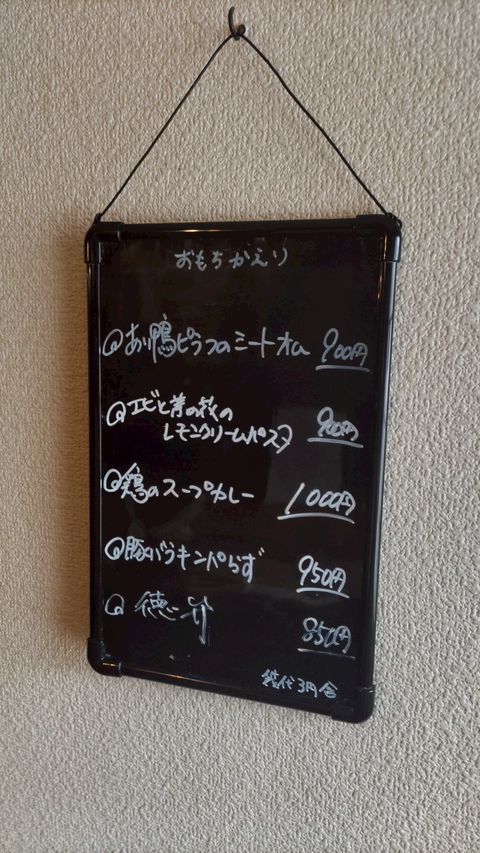 おもちかえり
あい鴨ピラフのミートオム 900円
エビと菜の花の
レモンクリームパスタ 900円
鶏のスープカレー 1000円
豚バラキンパらず 950円
徳二丼 850円
袋代3円含